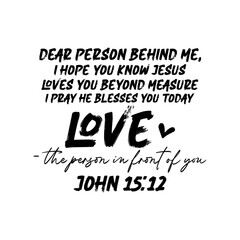 DEAR PERSON BEHIND ME,
I HOPE YOU KNOW JESUS
LOVES YOU BEYOND MEASURE
I PRAY HE BLESSES YOU TODAY
LOVE
- the person in front of you
JOHN 15:12